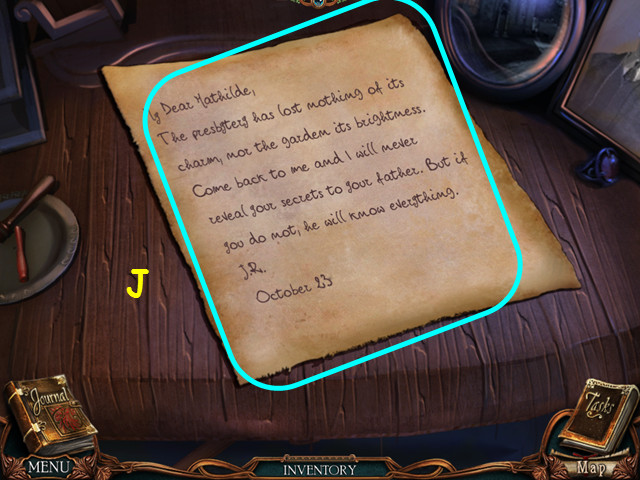 y Dear Mathilde,
The presbytery has lost nothing of its
charm, nor the garden its brightness.
Come back to me and I will never
reveal your secrets to your father. But if
you do not, he will know everything.
J.R.
October 23
J
Journal
Tasks
MENU
INVENTORY
Map